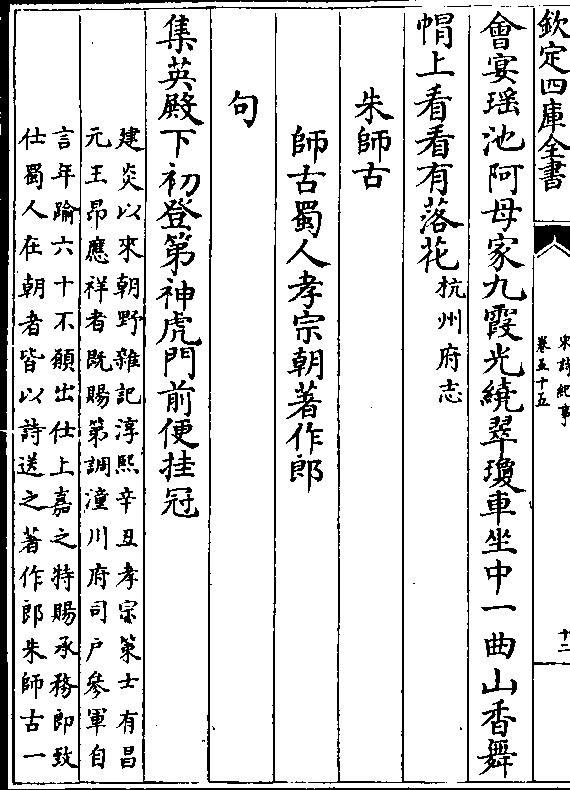 欽定四庫全書
宋詩紀事
卷五十五
十二
會宴瑶池阿母家九霞光繞翠瓊車坐中一曲山香舞
帽上看看有落花杭州府志
朱師古
師古蜀人孝宗朝著作郎
句
集英殿下初登第神虎門前便挂冠
建炎以來朝野雜記淳熙辛丑孝宗策士有昌
元王昂應祥者既賜第調潼川府司户參軍自
言年踰六十不願出仕上嘉之特賜承務郎致
仕蜀人在朝者皆以詩送之著作郎朱師古一